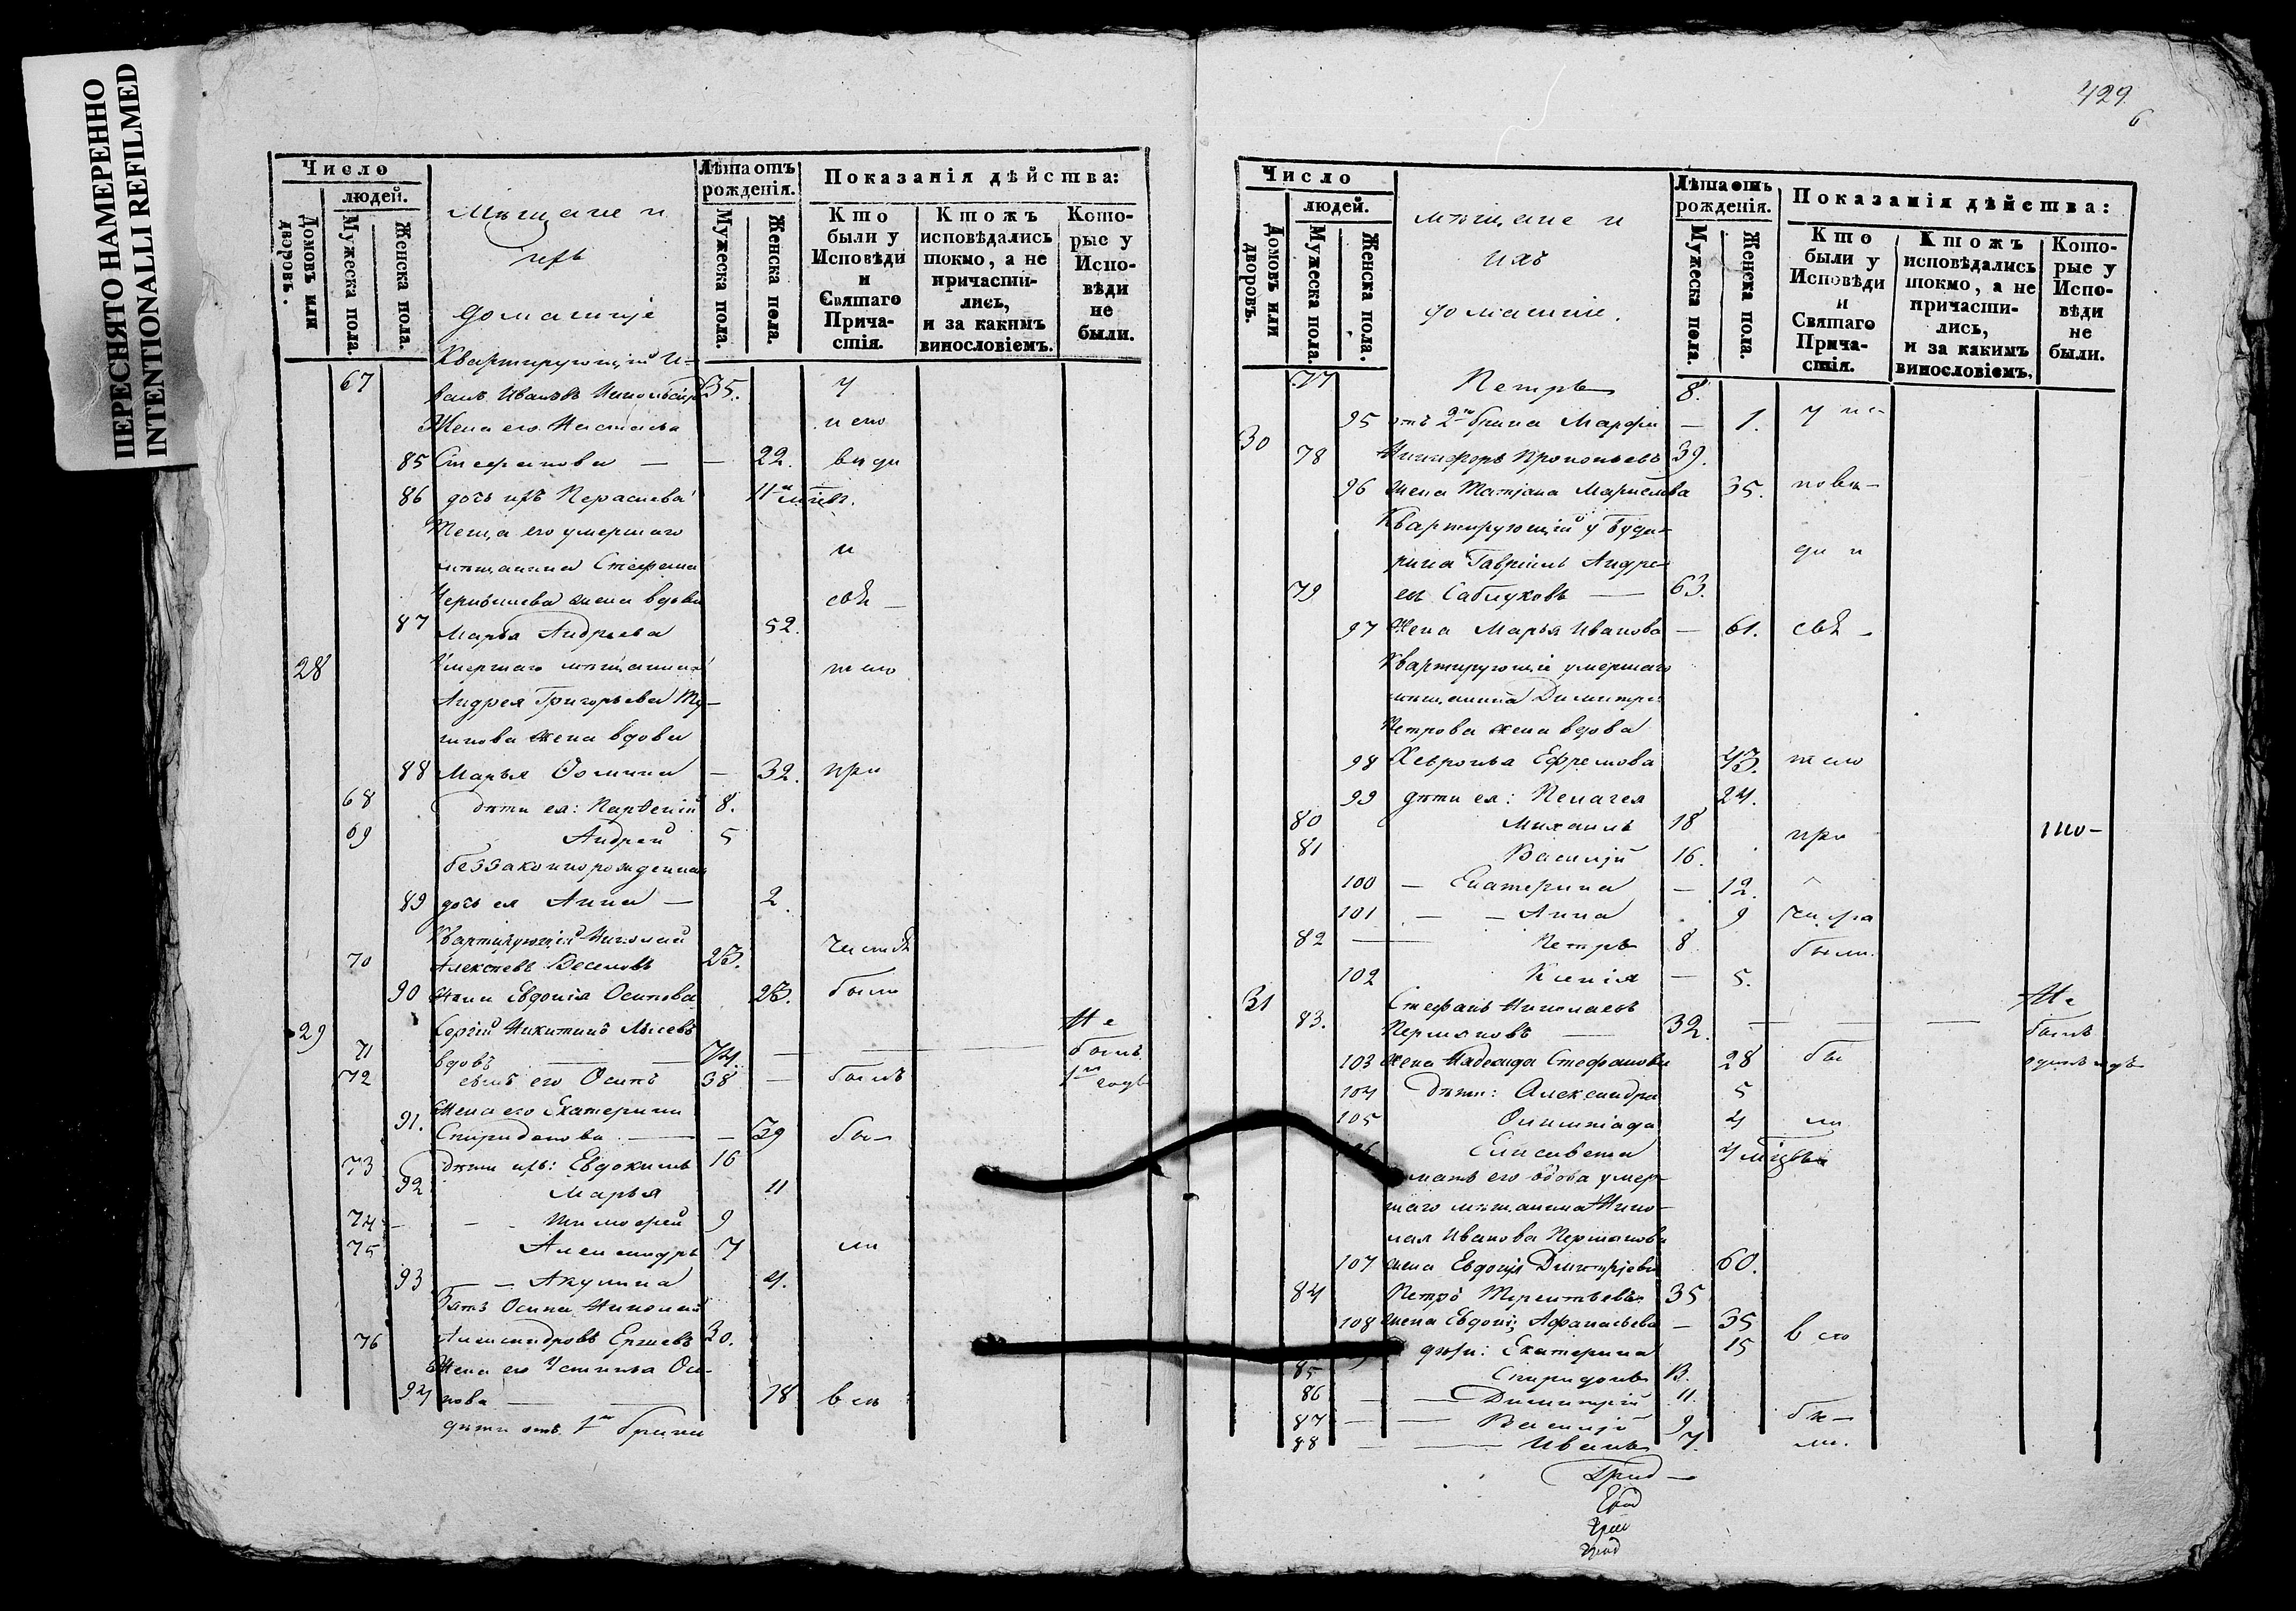 ПЕРЕСНЯТО НАМЕРЕННО
INTENTIONALLI REFILMED
Число
людей.
Домовъ или дворовъ.
Мужеска пола.
Женска пола.
Мѣщане и
ихъ
домашніе
Лѣта отъ рожденія.
Мужеска пола.
Женска пола.
Показанія дѣйства:
Кто были у Исповѣди и Святаго Прича-стія.
Ктожъ исповѣдались токмо, а не причасти-лись, и за какимъ винословіемъ.
Кото-рые у Испо-вѣди не были.
Квартирующій И-
67 ванъ Ивановъ 35. у
Жена его Настасья испо
85 Стефанова — — 22. вѣди
86 дочь ихъ Параскева 11 мѣсяц.
Теща его умершаго
мѣщанина Стефана и
жена вдова свя—
87 Марья Андреева 52.
28 Умершаго мѣщанина таго
Андрея Григорьева Ту-
жена вдова
88 Марья Фомина — 32. при
68 дѣти ея: Парѳеній 8.
69 Андрей 5
беззаконнорожденная
89 дочь ея Анна — 2.
Квартирующій Николай частія
70 Алексѣевъ Веселовъ 23.
90 Жена Евдокія Осипова 23. были
29 Сергій Никитинъ Не
71 вдовъ — — 74. — — — былъ
72 сынъ его Осипъ 38 — былъ 1й годъ
Жена его Екатерина
91. Спиридонова — — 39 бы—
73 дѣти ихъ: Евдокимъ 16
92 Марья 11
74 — — - Тимофей 9
75 Александръ 7 ли
93 — — Акулина 4.
Зять Осипа Николай
76 Александровъ Ершевъ 30.
Жена его Устинья Оси-
94 пова — — 18 всѣ
дѣти отъ 1го брака
429
6
Число
людей.
Домовъ или дворовъ.
Мужеска пола.
Женска пола.
мѣщане и
ихъ
домашніе.
Лѣта отъ рожденія.
Мужеска пола.
Женска пола.
Показанія дѣйства:
Кто были у Исповѣди и Святаго Прича-стія.
Ктожъ исповѣдались токмо, а не причасти-лись, и за какимъ винословіемъ.
Кото-рые у Испо-вѣди не были.
77 Петръ 8.
95 отъ 2го брака Марфа — 1. у ис-
30 78 Никифоръ Прокопьевъ 39.
96 жена Татьяна 35. повѣ-
Квартирующій у Буда-
рина Гавріилъ Андре- ди и
79 евъ Саблуковъ — 63.
97 Жена Марья Иванова — 61. свя-
Квартирующіе умершаго
мѣщанина Димитрія
Петрова жена вдова
98 Хевронья Ефремова 43. таго
99 дѣти ея: Пелагея 24.
80 Михаилъ 18 при
81 Василій 16.
100 — Екатерина — 12.
101 — — Анна 9
82 — Петръ 8 были.
102 Ксенія — 5.
31 Стефанъ Николаевъ Не
83. Пермяковъ — 32. — — — былъ
103 жена Надежда Стефанова 28 бы одинъ годъ
104 дѣти: Александра 5
105 Олимпіада 4 ли
Елисавета 4 мѣсяцъ
мать его вдова умер-
шаго мѣщанина Нико-
лая Иванова Пермякова
107 жена Евдокія Димитріева 60.
84 Петръ Терентьевъ 35
108 жена Евдокія Афанасьева — 35 всѣ
дѣти: Екатерина 15
85 Спиридонъ 13.
86 — — Димитрій 11.
87 — — Василій 9 бы—
88 — — Иванъ 7. ли.